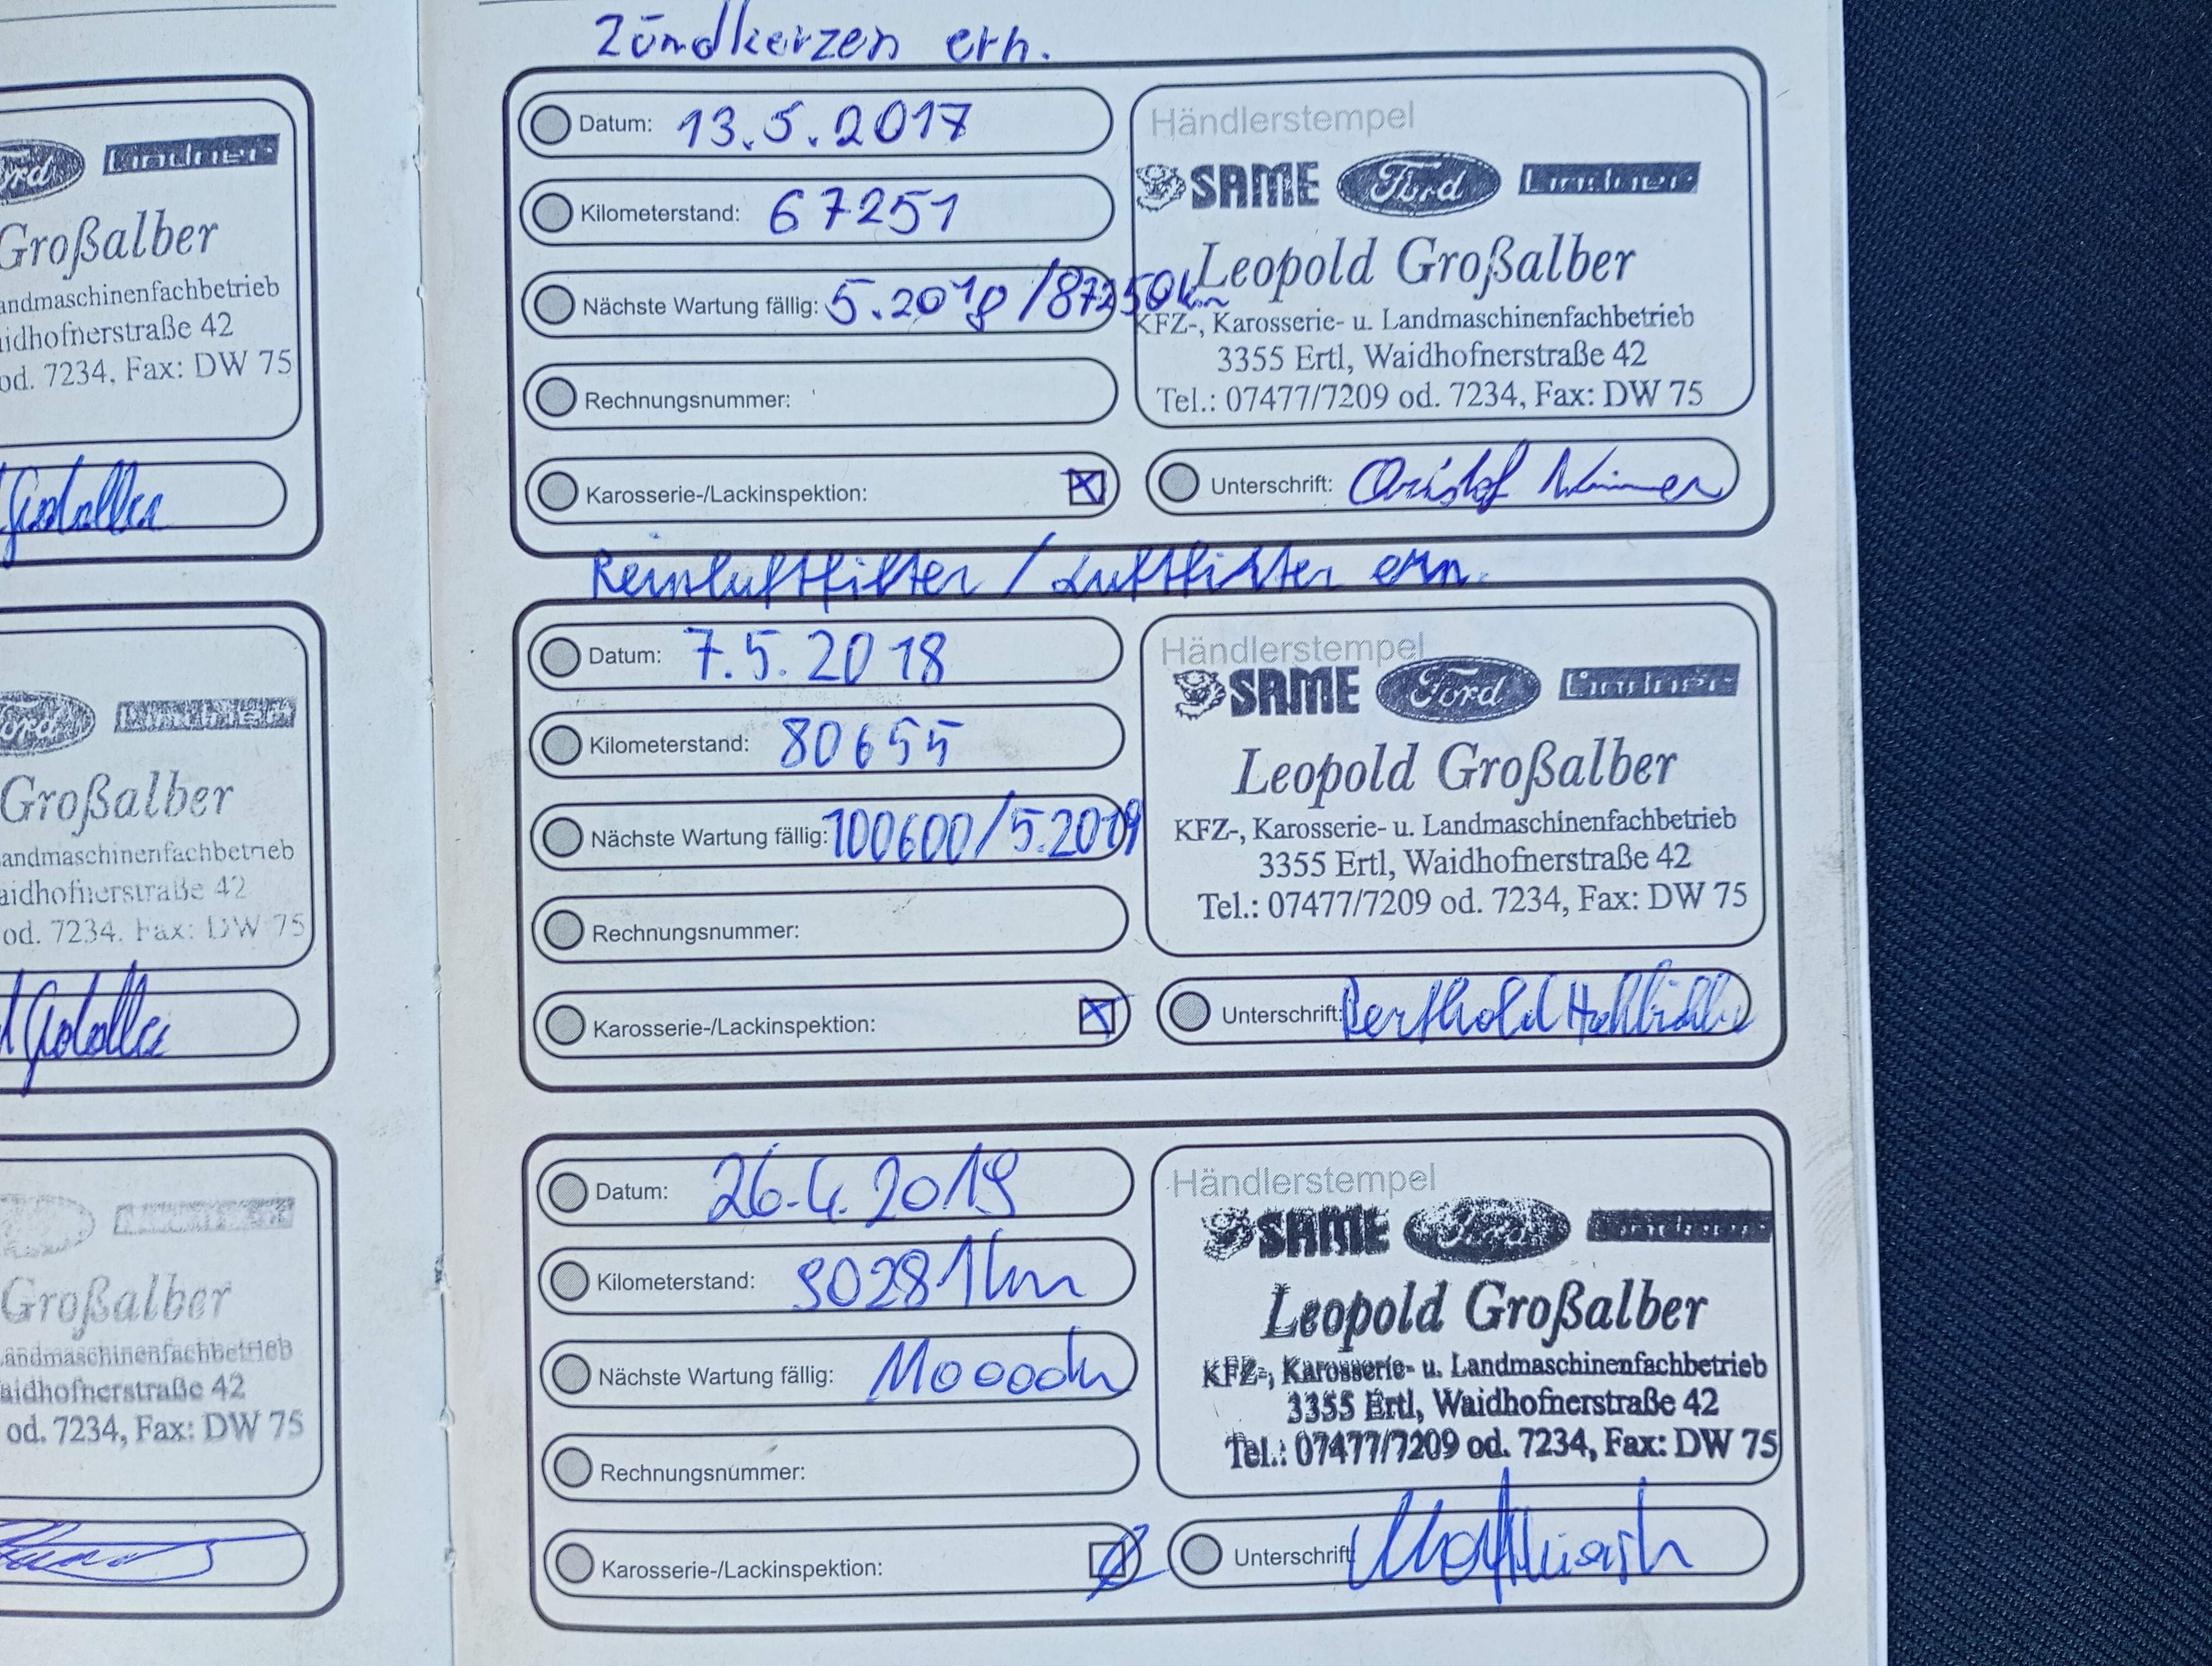 ord Lindner
Großalber
andmaschinenfachbetrieb
aidhofnerstraße 42
od. 7234, Fax: DW 75
ord Lindner
Großalber
andmaschinenfachbetrieb
aidhofnerstraße 42
od. 7234, Fax: DW 75
Großalber
andmaschinenfachbetrieb
aidhofnerstraße 42
od. 7234, Fax: DW 75
Zündkerzen ern.
Datum: 13.5.2017
Kilometerstand: 67251
Nächste Wartung fällig: 5.2018/87250km
Rechnungsnummer:
Karosserie-/Lackinspektion:
Händlerstempel
SAME Ford Lindner
Leopold Großalber
KFZ-, Karosserie- u. Landmaschinenfachbetrieb
3355 Ertl, Waidhofnerstraße 42
Tel.: 07477/7209 od. 7234, Fax: DW 75
Unterschrift:
Reinluftfilter / Luftfilter ern.
Datum: 7.5.2018
Kilometerstand: 80655
Nächste Wartung fällig: 100600/5.2019
Rechnungsnummer:
Karosserie-/Lackinspektion:
Händlerstempel
SAME Ford Lindner
Leopold Großalber
KFZ-, Karosserie- u. Landmaschinenfachbetrieb
3355 Ertl, Waidhofnerstraße 42
Tel.: 07477/7209 od. 7234, Fax: DW 75
Unterschrift: Berthold
Datum: 26.4.2019
Kilometerstand: 90281km
Nächste Wartung fällig: 110000km
Rechnungsnummer:
Karosserie-/Lackinspektion:
Händlerstempel
SAME Ford Lindner
Leopold Großalber
KFZ-, Karosserie- u. Landmaschinenfachbetrieb
3355 Ertl, Waidhofnerstraße 42
Tel.: 07477/7209 od. 7234, Fax: DW 75
Unterschrift